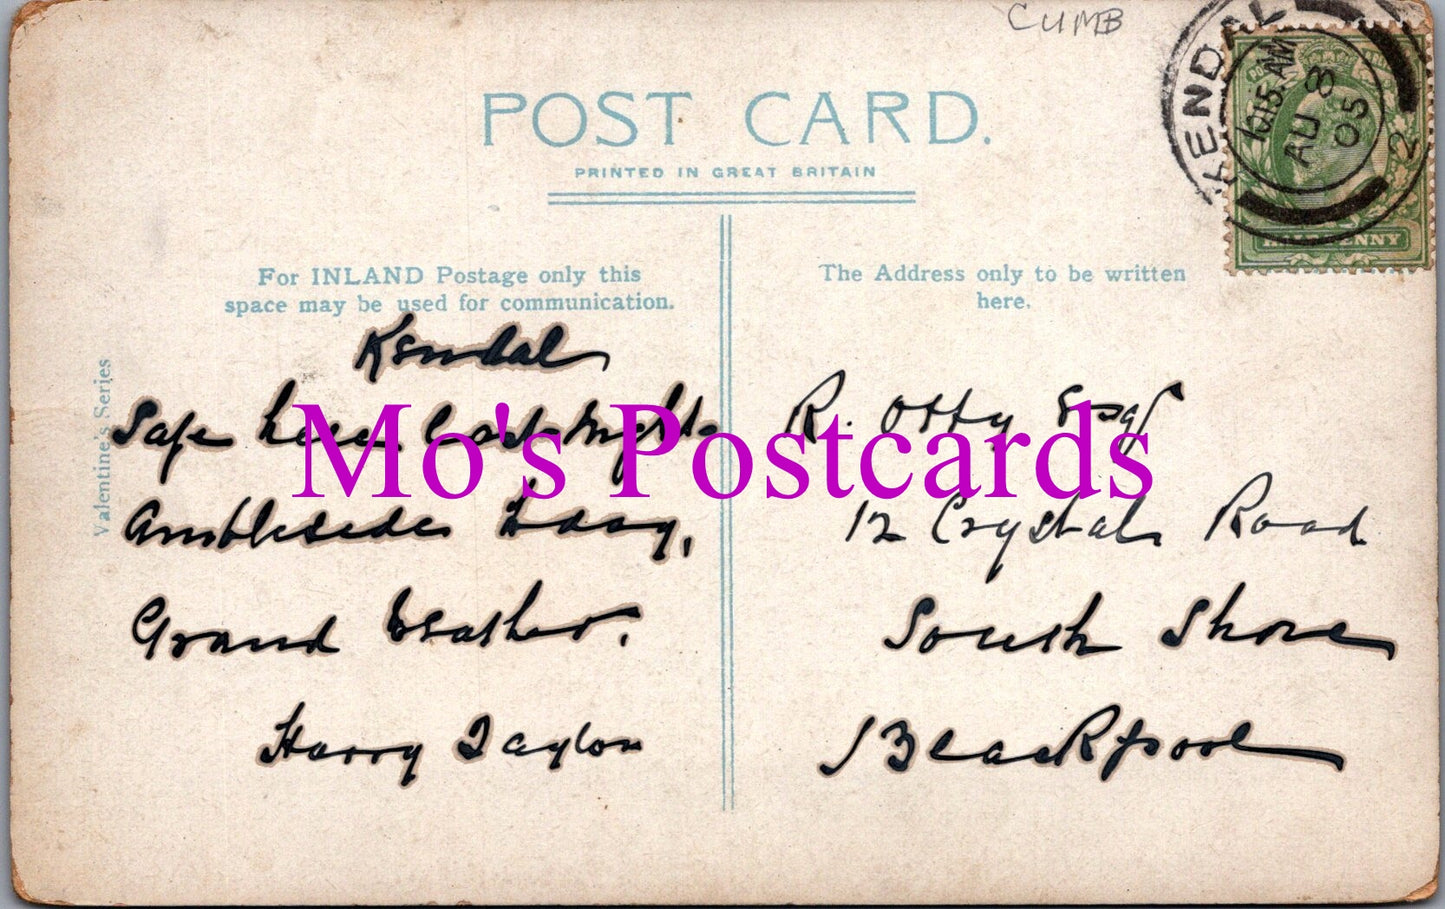 CUMB
KENDAL
10.15.AM
AU 8
05
2
HALFPENNY
POST CARD.
PRINTED IN GREAT BRITAIN
For INLAND Postage only this
space may be used for communication.
The Address only to be written
here.
Valentine's Series
Kendal
Safe here last night
Ambleside today,
Grand Weather.
Harry Taylor
R. Otty Esq
12 Crystal Road
South Shore
Blackpool
Mo's Postcards